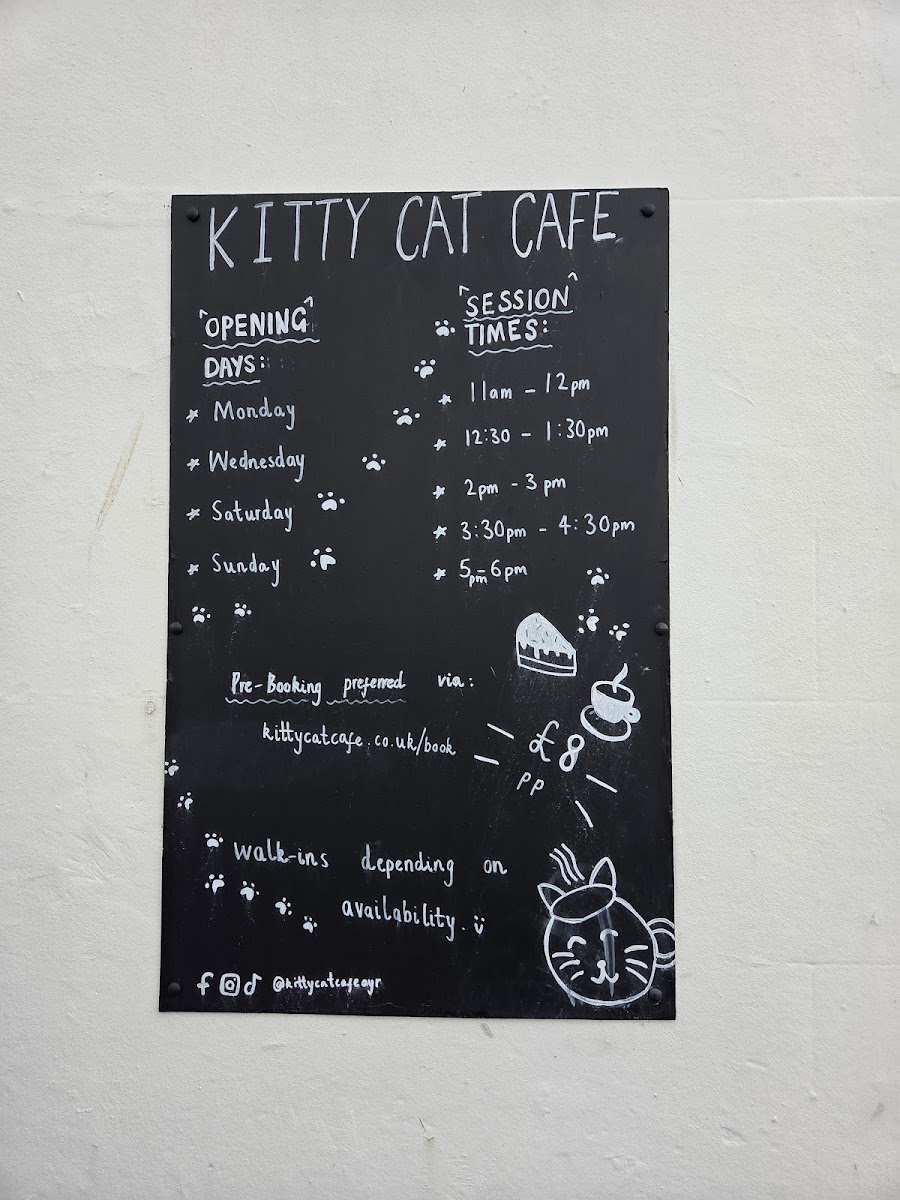 KITTY CAT CAFE
OPENING
DAYS:
* Monday
* Wednesday
* Saturday
* Sunday
SESSION
TIMES:
* 11am - 12pm
* 12:30 - 1:30pm
* 2pm - 3pm
* 3:30pm - 4:30pm
* 5pm-6pm
Pre-Booking preferred via:
kittycatcafe.co.uk/book
£8
PP
Walk-ins depending on
availability.
@kittycatcafeayr